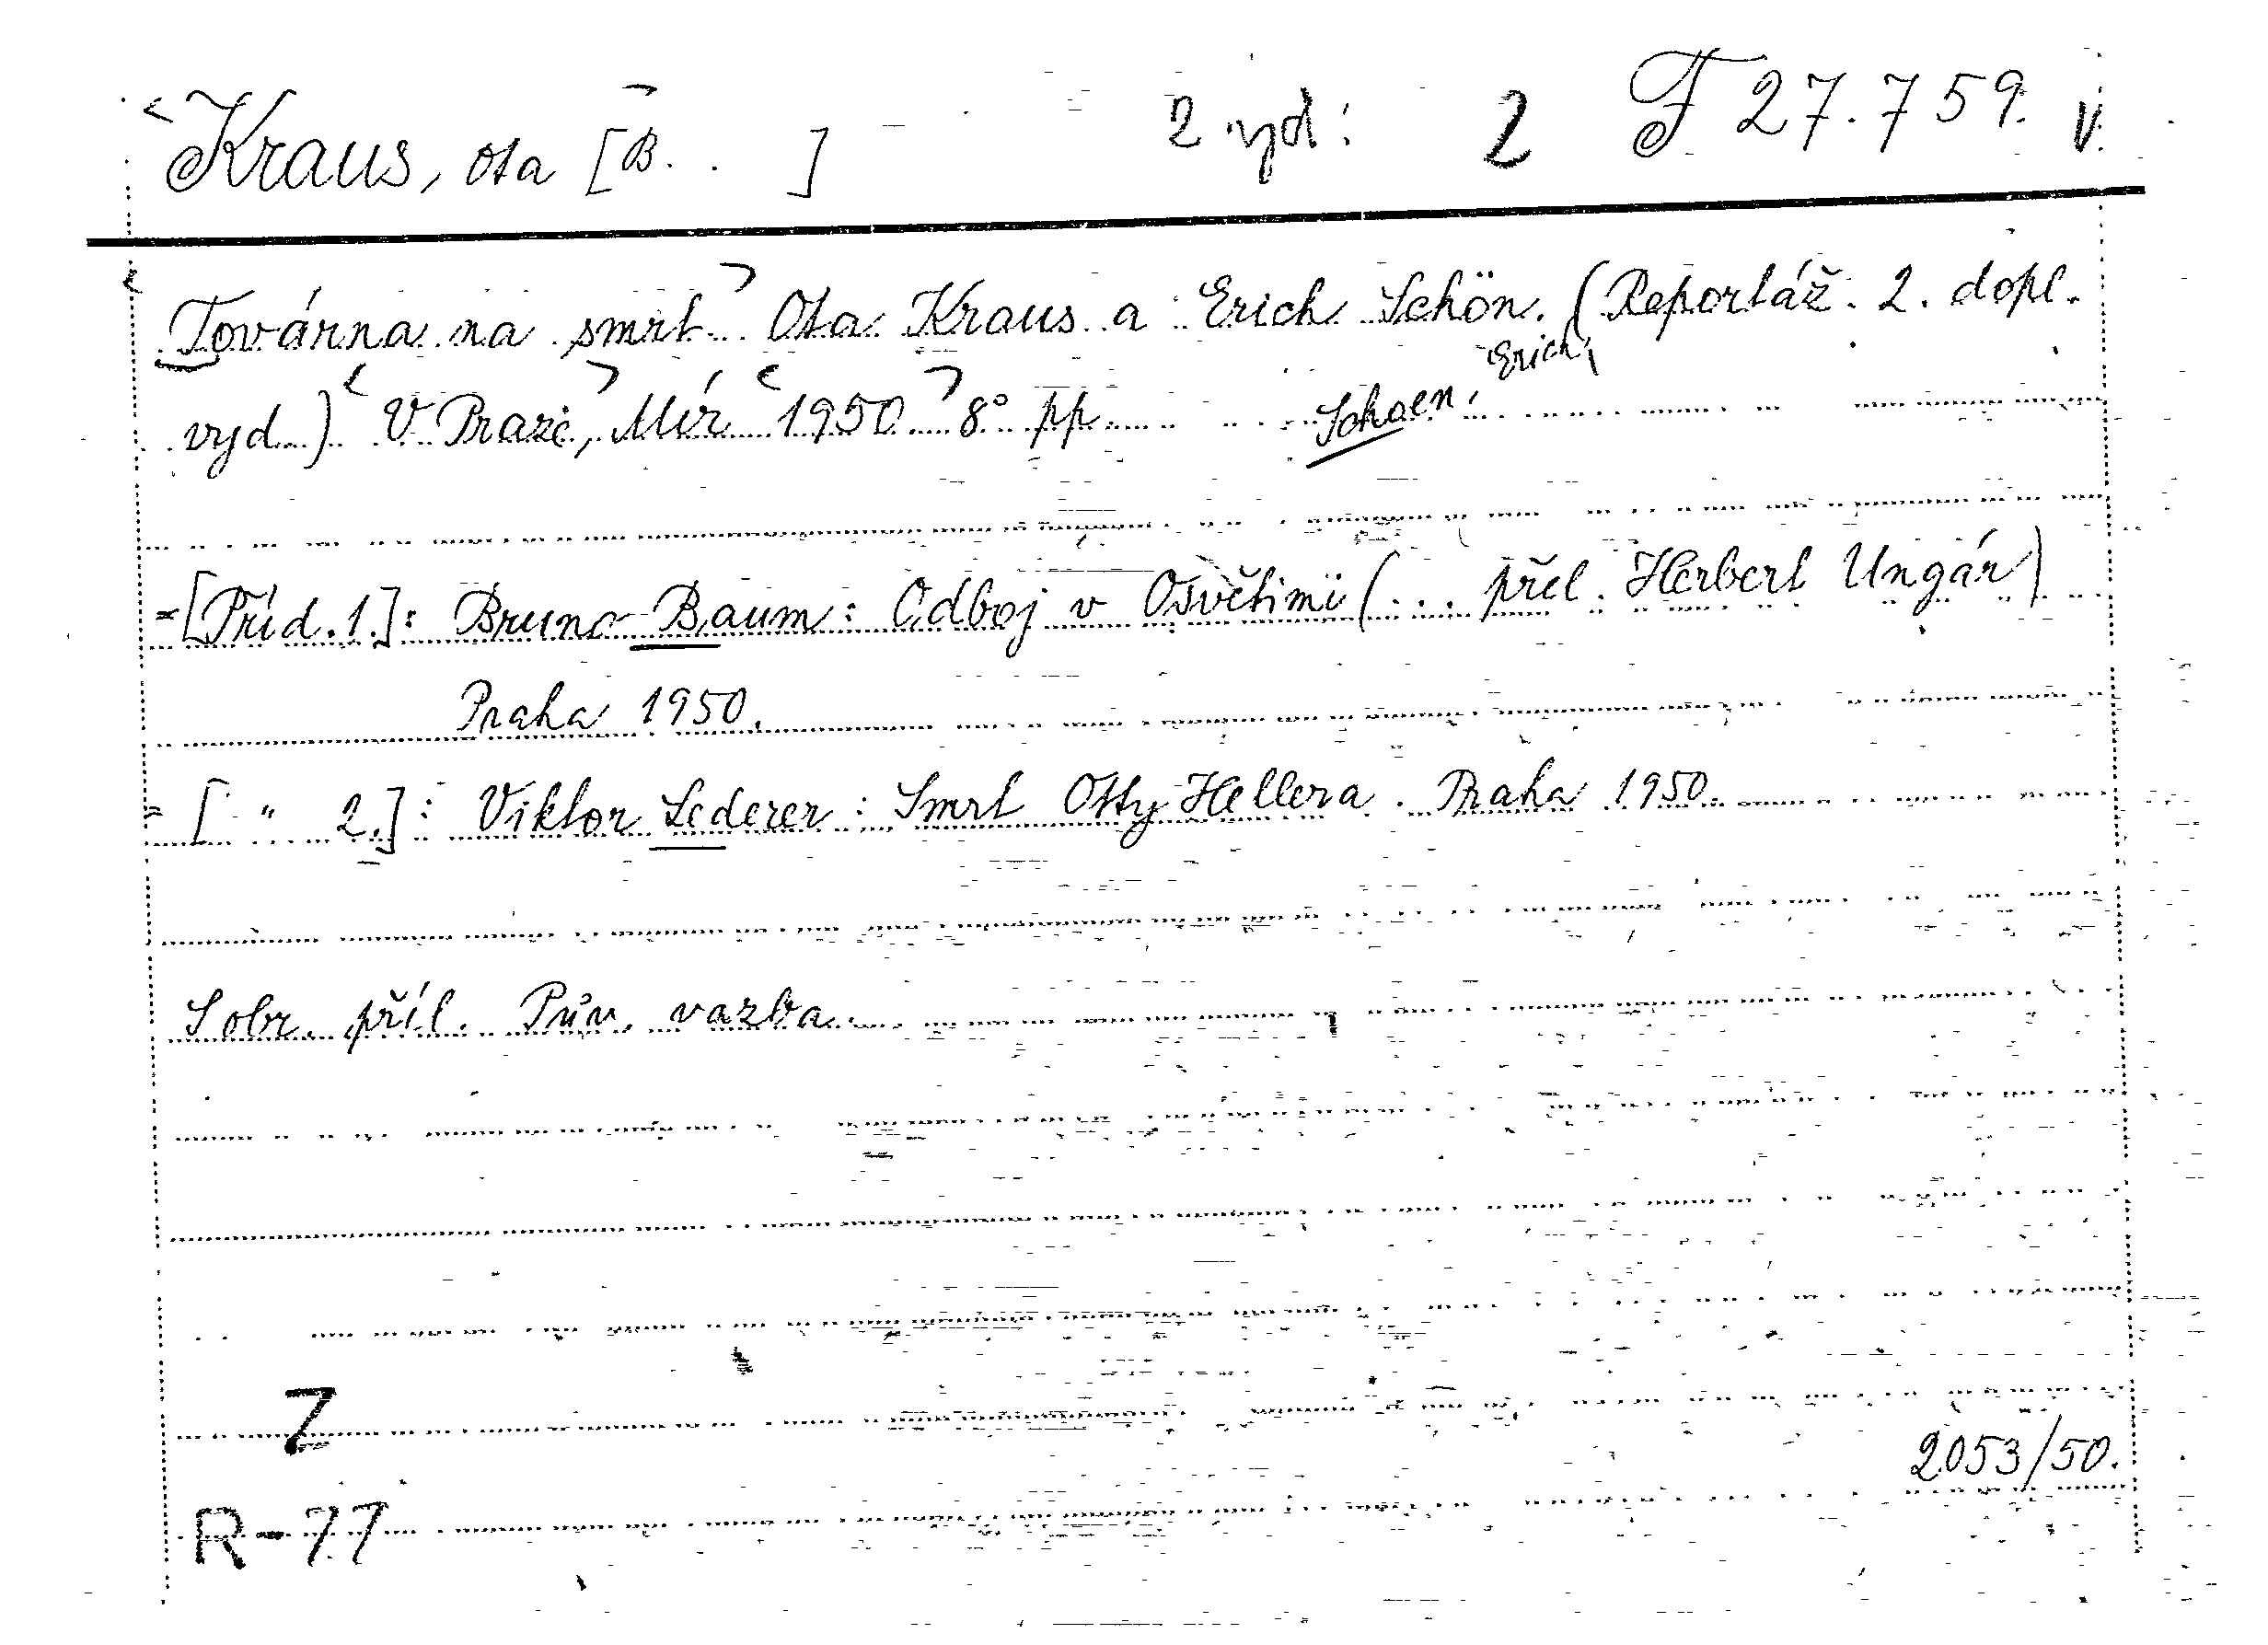 Kraus, Ota [B. . ] 2 vyd: 2 F 27.759. V.
Továrna na smrt Ota Kraus a Erich Schön. (Reportáž. 2. dopl.
vyd.) V Praze, Mír 1950. 8° pp Schoen, Erich
=[Příd. 1.]: Bruno Baum: Odboj v Osvětimi (... přel. Herbert Ungár)
Praha 1950.
=[ " 2.]: Viktor Lederer: Smrt Otty Hellera. Praha 1950.
S obr. příl. Pův. vazba.
Z
2053/50.
R-77